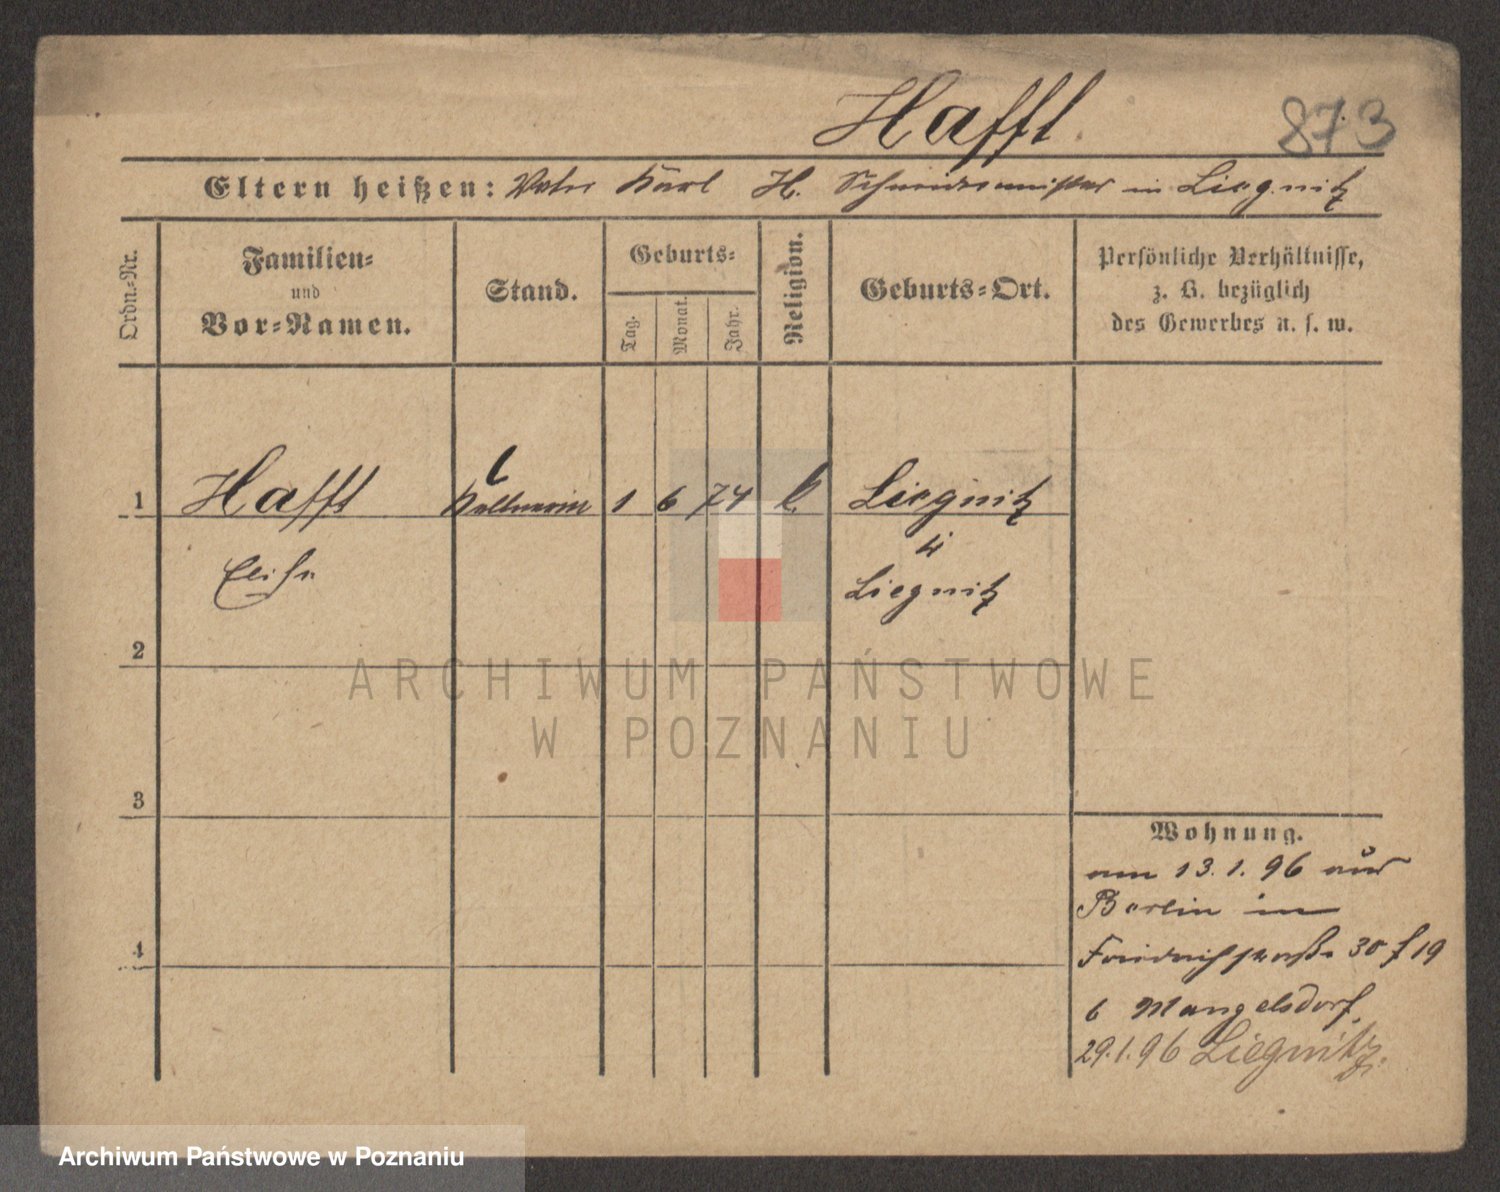 Hafft.
873
Eltern heißen: Vater Karl H. Schneidermeister in Liegnitz
Ordn.-Nr.
Familien-
und
Vor-Namen.
Stand.
Geburts-
Tag.
Monat.
Jahr.
Religion.
Geburts-Ort.
Persönliche Verhältnisse,
z. B. bezüglich
des Gewerbes u. s. w.
1
Hafft
Kellnerin
1
6
74
k.
Liegnitz
Liegnitz
2
3
4
Wohnung.
am 13.1.96 aus
Berlin in
Friedrichstraße 30
19
b Mangelsdorf.
29.1.96 Liegnitz.
ARCHIWUM PAŃSTWOWE
W POZNANIU
Archiwum Państwowe w Poznaniu